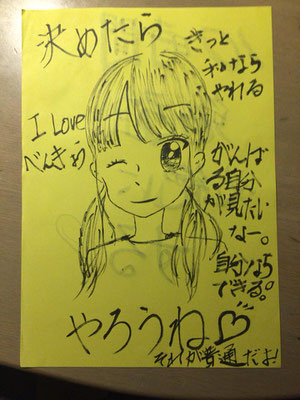 決めたら
きっと
私なら
やれる
I Love
べんきょう
がんば
る自分
が見たい
なー。
自分なら
できる。
やろうね♡
それが普通だよ!